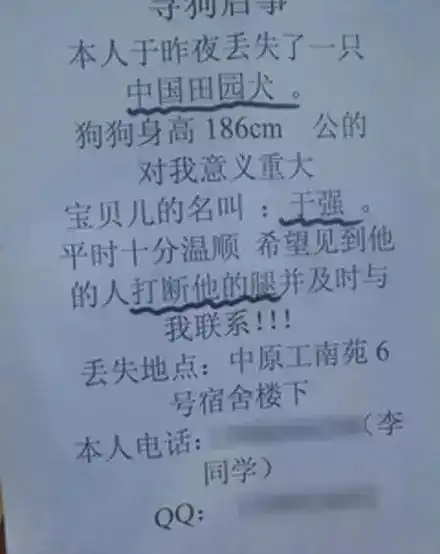 寻狗启事
本人于昨夜丢失了一只
中国田园犬 。
狗狗身高 186cm 公的
对我意义重大
宝贝儿的名叫 ：于强 。
平时十分温顺 希望见到他
的人打断他的腿并及时与
我联系!!!
丢失地点：中原工南苑 6
号宿舍楼下
本人电话： （李
同学）
QQ：